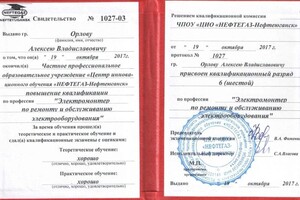 Свидетельство № 1027-03
Выдано гр. Орлову
(фамилия, имя, отчество)
Алексею Владиславовичу
в том, что он(а) " 19 " октября 2017г.
окончил(а) Частное профессиональное
образовательное учреждение «Центр иннова-
ционного обучения «НЕФТЕГАЗ-Нефтеюганск»
повышение квалификации
по профессии "Электромонтер
по ремонту и обслуживанию
электрооборудования"
За время обучения прошёл(а)
теоретическое и практическое обучение и
сдал(а) квалификационные экзамены с оценками:
Теоретическое обучение:
хорошо
Практическое обучение:
хорошо
Решением квалификационной комиссии
ЧПОУ «ЦИО «НЕФТЕГАЗ-Нефтеюганск»
от " 19 " октября 2017г.
протокол № 1027
гр. Орлову Алексею Владиславовичу
присвоен квалификационный разряд
6 (шестой)
по профессии "Электромонтер
по ремонту и обслуживанию
электрооборудования"
Председатель
НЕФТЕГАЗ
М.П.
19 октября 2017г.